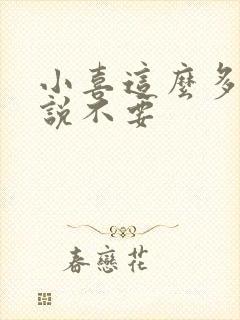 小喜這麼多
說不要
春戀花